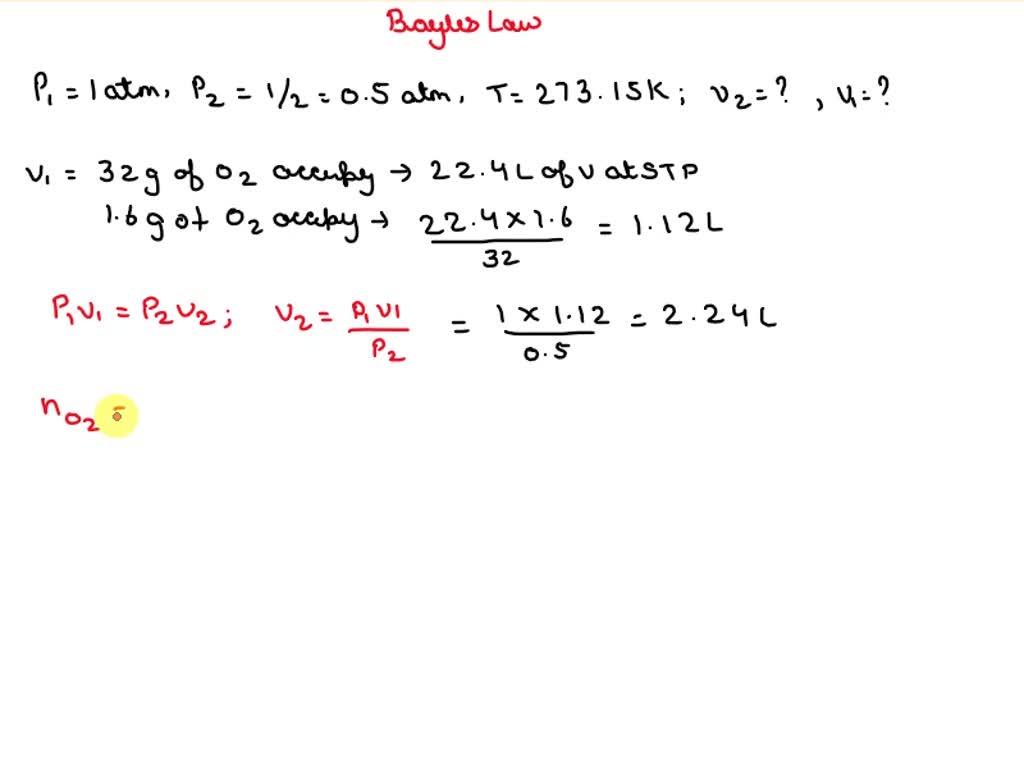 Boyles Law
P₁ = 1 atm, P₂ = 1/2 = 0.5 atm, T = 273.15K; V₂ = ?, V₁ = ?
V₁ = 32g of O₂ occupy → 22.4L of V at STP
1.6g of O₂ occupy → 22.4 × 1.6 / 32 = 1.12L
P₁V₁ = P₂V₂; V₂ = P₁V1 / P₂ = 1 × 1.12 / 0.5 = 2.24L
n O₂ =